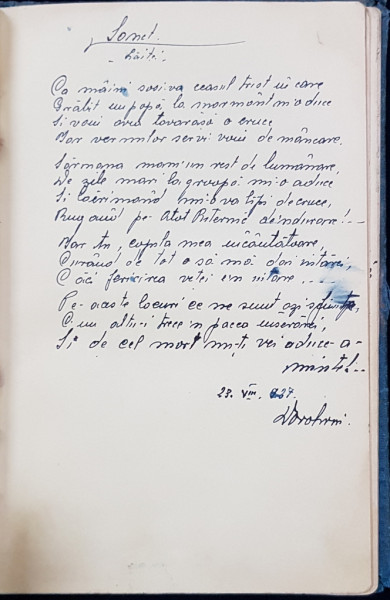 Sonet.
Ca mâini sosi-va ceasul trist în care
Grăbit un popă la mormânt m'o duce
Și voi avea tovarășă o cruce
Iar vermilor servi voi de mâncare.
Sărmana mam'un rest de lumânare,
De zile mari la groapă mi-o aduce
Și lăcrimând mi-o va lipi de cruce,
Rugând pe Atot Puternic de'ndurare! _
Iar tu, copila mea încântătoare,
Curând de tot o să mă dai uitării,
Căci fericirea vieții e'n uitare....
Pe-aceste locuri ce ne sunt azi sfinte,
Cu altu-i trece'n pacea înserării,
Și de cel mort nu-ți vei aduce a-
minte!..
23. VIII. 937.
Dorohoi.